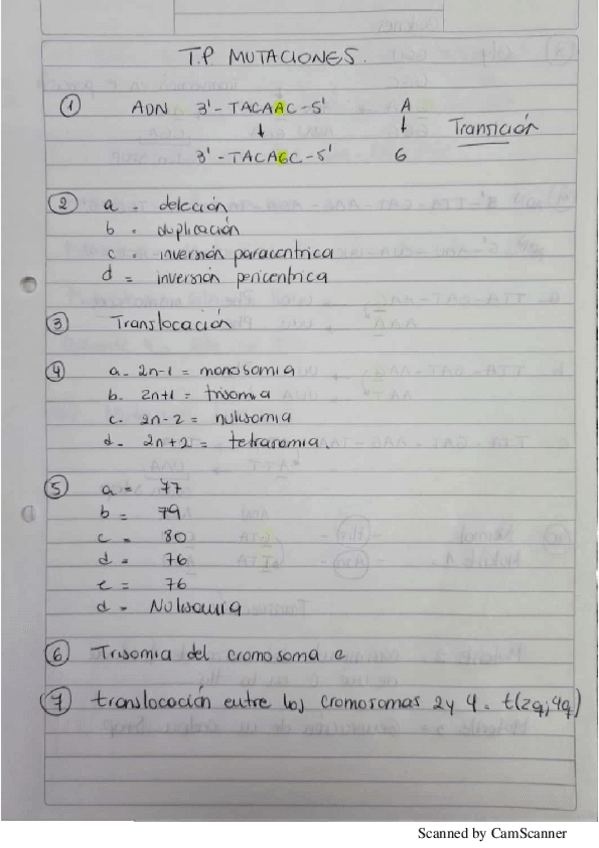 T.P MUTACIONES.
① ADN 3'-TACAAC-5' A
↓ ↓ Transición
3'-TACAGC-5' G
② a. deleción
b. duplicación
c. inversión paracentrica
d = inversión pericentrica
③ Translocación
④ a. 2n-1 = monosomia
b. 2n+1 = trisomia
c. 2n-2 = nulisomia
d. 2n+2 = tetrasomia.
⑤ a = 77
b = 79
c = 80
d = 76
e = 76
d = Nulisomia
⑥ Trisomia del cromosoma e
⑦ translocación entre los cromosomas 2 y 4 = t(2q;4q)
Scanned by CamScanner